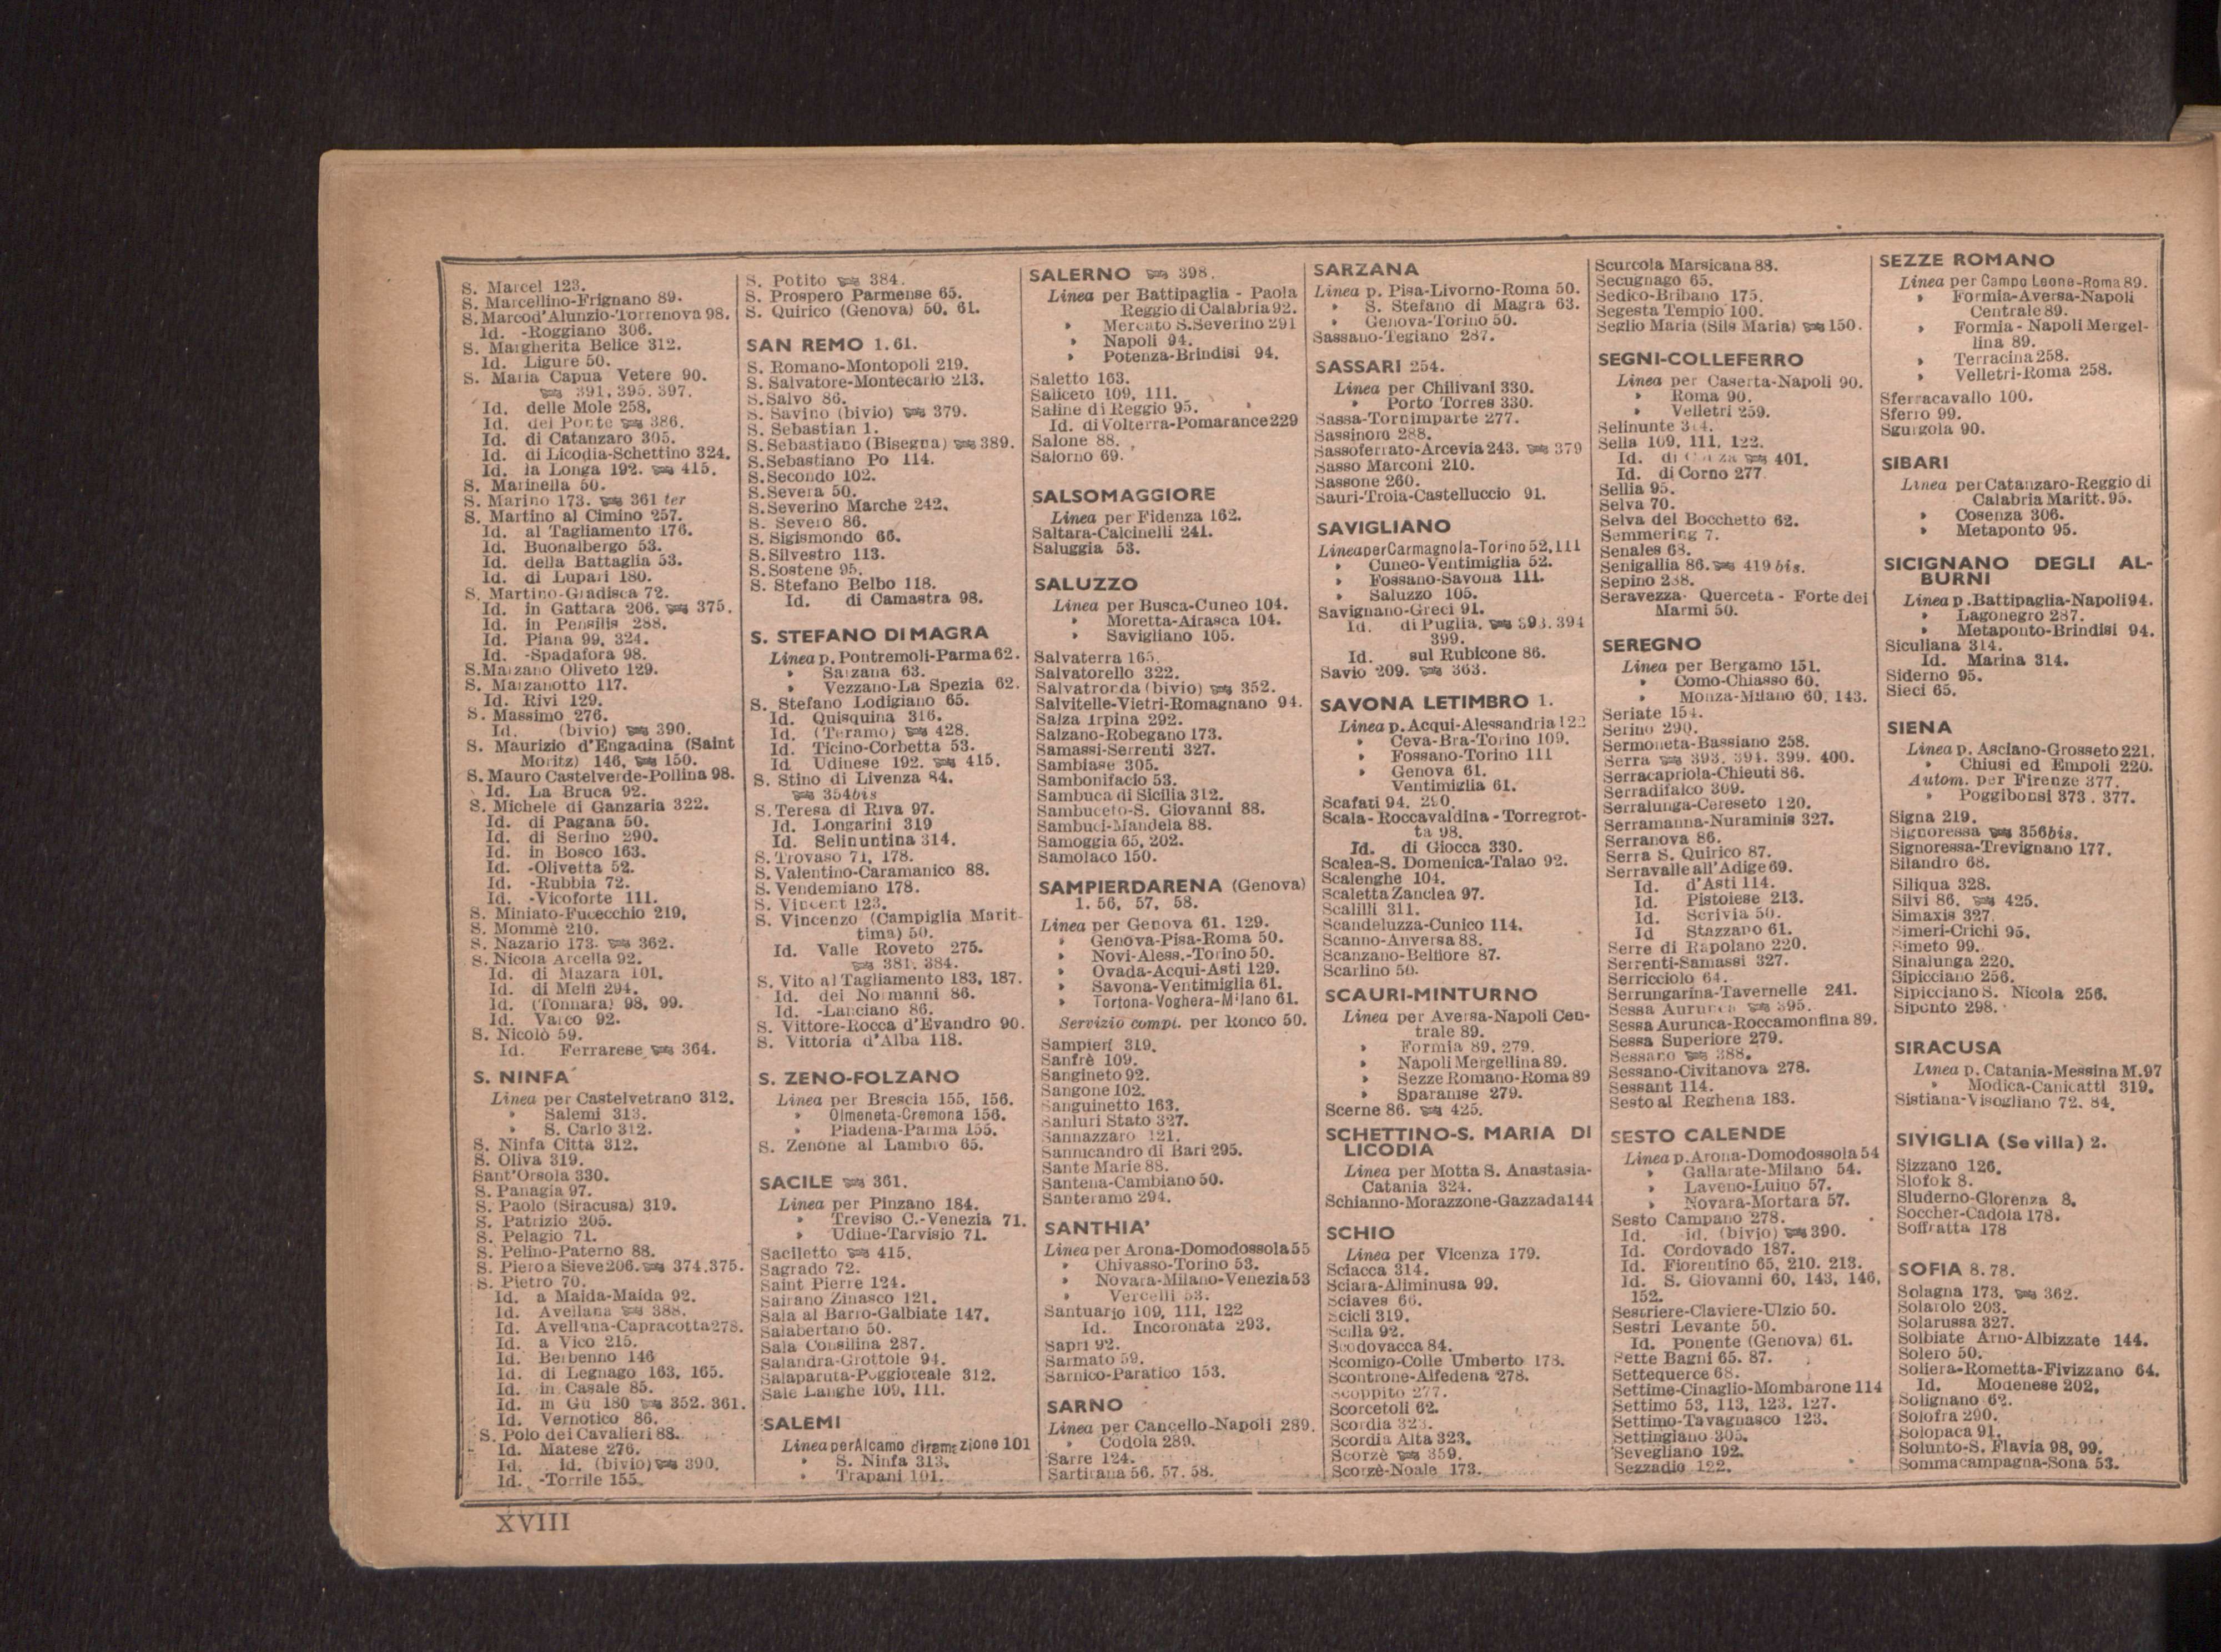 S. Marcel 123.
S. Marcellino-Frignano 89.
S. Marcod'Alunzio-Torrenova 98.
Id. -Roggiano 306.
S. Margherita Belice 312.
Id. Ligure 50.
S. Maria Capua Vetere 90.
391. 395. 397.
Id. delle Mole 258.
Id. del Ponte 386.
Id. di Catanzaro 305.
Id. di Licodia-Schettino 324.
Id. la Longa 192. 415.
S. Marinella 50.
S. Marino 173. 361 ter
S. Martino al Cimino 257.
Id. al Tagliamento 176.
Id. Buonalbergo 53.
Id. della Battaglia 53.
Id. di Lupari 180.
S. Martino-Gradisca 72.
Id. in Gattara 206. 375.
Id. in Pensilis 288.
Id. Piana 99, 324.
Id. -Spadafora 98.
S. Marzano Oliveto 129.
S. Marzanotto 117.
Id. Rivi 129.
S. Massimo 276.
Id. (bivio) 390.
S. Maurizio d'Engadina (Saint
Moritz) 146, 150.
S. Mauro Castelverde-Pollina 98.
Id. La Bruca 92.
S. Michele di Ganzaria 322.
Id. di Pagana 50.
Id. di Serino 290.
Id. in Bosco 163.
Id. -Olivetta 52.
Id. -Rubbia 72.
Id. -Vicoforte 111.
S. Miniato-Fucecchio 219.
S. Mommè 210.
S. Nazario 173. 362.
S. Nicola Arcella 92.
Id. di Mazara 101.
Id. di Melfi 294.
Id. (Tonnara) 98, 99.
Id. Varco 92.
S. Nicolò 59.
Id. Ferrarese 364.
S. NINFA
Linea per Castelvetrano 312.
» Salemi 313.
» S. Carlo 312.
S. Ninfa Città 312.
S. Oliva 319.
Sant'Orsola 330.
S. Panagia 97.
S. Paolo (Siracusa) 319.
S. Patrizio 205.
S. Pelagio 71.
S. Pelino-Paterno 88.
S. Piero a Sieve 206. 374. 375.
S. Pietro 70.
Id. a Maida-Maida 92.
Id. Avellana 388.
Id. Avellana-Capracotta 278.
Id. a Vico 215.
Id. Berbenno 146
Id. di Legnago 163, 165.
Id. in Casale 85.
Id. in Gù 180 352. 361.
Id. Vernotico 86.
S. Polo dei Cavalieri 88.
Id. Matese 276.
Id. id. (bivio) 390.
Id. -Torrile 155.
S. Potito 384.
S. Prospero Parmense 65.
S. Quirico (Genova) 50, 61.
SAN REMO 1. 61.
S. Romano-Montopoli 219.
S. Salvatore-Montecarlo 213.
S. Salvo 86.
S. Savino (bivio) 379.
S. Sebastian 1.
S. Sebastiano (Bisegna) 389.
S. Sebastiano Po 114.
S. Secondo 102.
S. Severa 50.
S. Severino Marche 242.
S. Severo 86.
S. Sigismondo 66.
S. Silvestro 113.
S. Sostene 95.
S. Stefano Belbo 118.
Id. di Camastra 98.
S. STEFANO DI MAGRA
Linea p. Pontremoli-Parma 62.
» Sarzana 63.
» Vezzano-La Spezia 62.
S. Stefano Lodigiano 65.
Id. Quisquina 316.
Id. (Teramo) 428.
Id. Ticino-Corbetta 53.
Id Udinese 192. 415.
S. Stino di Livenza 84.
354bis
S. Teresa di Riva 97.
Id. Longarini 319
Id. Selinuntina 314.
S. Trovaso 71, 178.
S. Valentino-Caramanico 88.
S. Vendemiano 178.
S. Vincent 123.
S. Vincenzo (Campiglia Marit-
tima) 50.
Id. Valle Roveto 275.
381. 384.
S. Vito al Tagliamento 183, 187.
Id. dei Normanni 86.
Id. -Lanciano 86.
S. Vittore-Rocca d'Evandro 90.
S. Vittoria d'Alba 118.
S. ZENO-FOLZANO
Linea per Brescia 155, 156.
» Olmeneta-Cremona 156.
» Piadena-Parma 155.
S. Zenone al Lambro 65.
SACILE 361.
Linea per Pinzano 184.
» Treviso C.-Venezia 71.
» Udine-Tarvisio 71.
Saciletto 415.
Sagrado 72.
Saint Pierre 124.
Sairano Zinasco 121.
Sala al Barro-Galbiate 147.
Salabertano 50.
Sala Consilina 287.
Salandra-Grottole 94.
Salaparuta-Poggioreale 312.
Sale Langhe 109, 111.
SALEMI
Linea per Alcamo diramazione 101
» S. Ninfa 313.
» Trapani 101.
SALERNO 398.
Linea per Battipaglia - Paola
Reggio di Calabria 92.
» Mercato S. Severino 291
» Napoli 94.
» Potenza-Brindisi 94.
Saletto 163.
Saliceto 109, 111.
Saline di Reggio 95.
Id. di Volterra-Pomarance 229
Salone 88.
Salorno 69.
SALSOMAGGIORE
Linea per Fidenza 162.
Saltara-Calcinelli 241.
Saluggia 53.
SALUZZO
Linea per Busca-Cuneo 104.
» Moretta-Airasca 104.
» Savigliano 105.
Salvaterra 165.
Salvatorello 322.
Salvatronda (bivio) 352.
Salvitelle-Vietri-Romagnano 94.
Salza Irpina 292.
Salzano-Robegano 173.
Samassi-Serrenti 327.
Sambiase 305.
Sambonifacio 53.
Sambuca di Sicilia 312.
Sambuceto-S. Giovanni 88.
Sambuci-Mandela 88.
Samoggia 65, 202.
Samolaco 150.
SAMPIERDARENA (Genova)
1. 56, 57, 58.
Linea per Genova 61. 129.
» Genova-Pisa-Roma 50.
» Novi-Aless.-Torino 50.
» Ovada-Acqui-Asti 129.
» Savona-Ventimiglia 61.
» Tortona-Voghera-Milano 61.
Servizio compl. per Ronco 50.
Sampieri 319.
Sanfrè 109.
Sangineto 92.
Sangone 102.
Sanguinetto 163.
Sanluri Stato 327.
Sannazzaro 121.
Sannicandro di Bari 295.
Sante Marie 88.
Santena-Cambiano 50.
Santeramo 294.
SANTHIA'
Linea per Arona-Domodossola 55
» Chivasso-Torino 53.
» Novara-Milano-Venezia 53
» Vercelli 53.
Santuario 109, 111, 122
Id. Incoronata 293.
Sapri 92.
Sarmato 59.
Sarnico-Paratico 153.
SARNO
Linea per Cancello-Napoli 289.
» Codola 289.
Sarre 124.
Sartirana 56. 57. 58.
SARZANA
Linea p. Pisa-Livorno-Roma 50.
» S. Stefano di Magra 63.
» Genova-Torino 50.
Sassano-Tegiano 287.
SASSARI 254.
Linea per Chilivani 330.
» Porto Torres 330.
Sassa-Tornimparte 277.
Sassinoro 288.
Sassoferrato-Arcevia 243. 379
Sasso Marconi 210.
Sassone 260.
Sauri-Troia-Castelluccio 91.
SAVIGLIANO
Linea per Carmagnola-Torino 52, 111
» Cuneo-Ventimiglia 52.
» Fossano-Savona 111.
» Saluzzo 105.
Savignano-Greci 91.
Id. di Puglia. 393. 394
399.
Id. sul Rubicone 86.
Savio 209. 363.
SAVONA LETIMBRO 1.
Linea p. Acqui-Alessandria 122
» Ceva-Bra-Torino 109.
» Fossano-Torino 111
» Genova 61.
Ventimiglia 61.
Scafati 94. 290.
Scala-Roccavaldina-Torregrot-
ta 98.
Id. di Giocca 330.
Scalea-S. Domenica-Talao 92.
Scalenghe 104.
Scaletta Zanclea 97.
Scalilli 311.
Scandeluzza-Cunico 114.
Scanno-Anversa 88.
Scanzano-Belfiore 87.
Scarlino 50.
SCAURI-MINTURNO
Linea per Aversa-Napoli Cen-
trale 89.
» Formia 89, 279.
» Napoli Mergellina 89.
» Sezze Romano-Roma 89
» Sparanise 279.
Scerne 86. 425.
SCHETTINO-S. MARIA DI
LICODIA
Linea per Motta S. Anastasia-
Catania 324.
Schianno-Morazzone-Gazzada 144
SCHIO
Linea per Vicenza 179.
Sciacca 314.
Sciara-Aliminusa 99.
Sciaves 66.
Scicli 319.
Scilla 92.
Scodovacca 84.
Scomigo-Colle Umberto 178.
Scontrone-Alfedena 278.
Scoppito 277.
Scorcetoli 62.
Scordia 323.
Scordia Alta 323.
Scorzè 359.
Scorzè-Noale 173.
Scurcola Marsicana 88.
Secugnago 65.
Sedico-Bribano 175.
Segesta Tempio 100.
Seglio Maria (Sils Maria) 150.
SEGNI-COLLEFERRO
Linea per Caserta-Napoli 90.
» Roma 90.
» Velletri 259.
Selinunte 314.
Sella 109, 111, 122.
Id. di 401.
Id. di Corno 277.
Sellia 95.
Selva 70.
Selva del Bocchetto 62.
Semmering 7.
Senales 68.
Senigallia 86. 419 bis.
Sepino 288.
Seravezza- Querceta - Forte dei
Marmi 50.
SEREGNO
Linea per Bergamo 151.
» Como-Chiasso 60.
» Monza-Milano 60, 143.
Seriate 154.
Serino 290.
Sermoneta-Bassiano 258.
Serra 393. 394. 399. 400.
Serracapriola-Chieuti 86.
Serradifalco 309.
Serralunga-Cereseto 120.
Serramanna-Nuraminis 327.
Serranova 86.
Serra S. Quirico 87.
Serravalle all'Adige 69.
Id. d'Asti 114.
Id. Pistoiese 213.
Id. Scrivia 50.
Id Stazzano 61.
Serre di Rapolano 220.
Serrenti-Samassi 327.
Serricciolo 64.
Serrungarina-Tavernelle 241.
Sessa Aurunca 395.
Sessa Aurunca-Roccamonfina 89.
Sessa Superiore 279.
Sessano 388.
Sessano-Civitanova 278.
Sessant 114.
Sesto al Reghena 183.
SESTO CALENDE
Linea p. Arona-Domodossola 54
» Gallarate-Milano 54.
» Laveno-Luino 57.
» Novara-Mortara 57.
Sesto Campano 278.
Id. id. (bivio) 390.
Id. Cordovado 187.
Id. Fiorentino 65, 210. 213.
Id. S. Giovanni 60, 143, 146,
152.
Sestriere-Claviere-Ulzio 50.
Sestri Levante 50.
Id. Ponente (Genova) 61.
Sette Bagni 65. 87.
Settequerce 68.
Settime-Cinaglio-Mombarone 114
Settimo 53, 113, 123. 127.
Settimo-Tavagnasco 123.
Settingiano 305.
Sevegliano 192.
Sezzadio 122.
SEZZE ROMANO
Linea per Campo Leone-Roma 89.
» Formia-Aversa-Napoli
Centrale 89.
» Formia - Napoli Mergel-
lina 89.
» Terracina 258.
» Velletri-Roma 258.
Sferracavallo 100.
Sferro 99.
Sgurgola 90.
SIBARI
Linea per Catanzaro-Reggio di
Calabria Maritt. 95.
» Cosenza 306.
» Metaponto 95.
SICIGNANO DEGLI AL-
BURNI
Linea p. Battipaglia-Napoli 94.
» Lagonegro 287.
» Metaponto-Brindisi 94.
Siculiana 314.
Id. Marina 314.
Siderno 95.
Sieci 65.
SIENA
Linea p. Asciano-Grosseto 221.
» Chiusi ed Empoli 220.
Autom. per Firenze 377.
» Poggibonsi 373. 377.
Signa 219.
Signoressa 356bis.
Signoressa-Trevignano 177.
Silandro 68.
Siliqua 328.
Silvi 86. 425.
Simaxis 327.
Simeri-Crichi 95.
Simeto 99.
Sinalunga 220.
Sipicciano 256.
Sipicciano S. Nicola 256.
Siponto 298.
SIRACUSA
Linea p. Catania-Messina M. 97
» Modica-Canicattì 319.
Sistiana-Visogliano 72. 84.
SIVIGLIA (Sevilla) 2.
Sizzano 126.
Slofok 8.
Sluderno-Glorenza 8.
Soccher-Cadola 178.
Soffratta 178
SOFIA 8. 78.
Solagna 173. 362.
Solarolo 203.
Solarussa 327.
Solbiate Arno-Albizzate 144.
Solero 50.
Soliera-Rometta-Fivizzano 64.
Id. Modenese 202.
Solignano 62.
Solofra 290.
Solopaca 91.
Solunto-S. Flavia 98, 99.
Sommacampagna-Sona 53.
XVIII